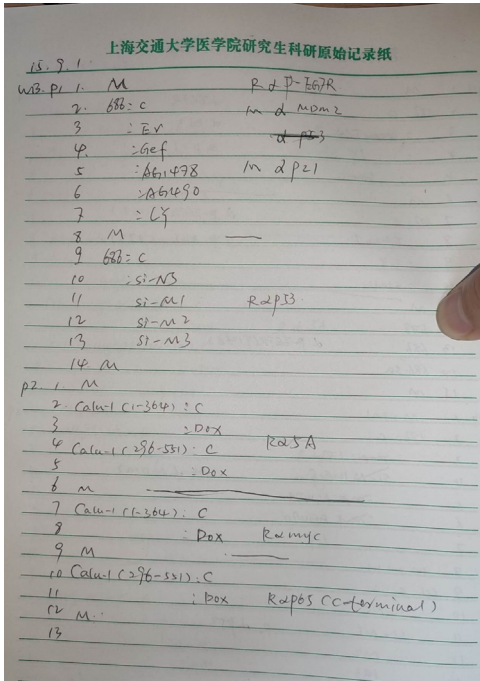 上海交通大学医学院研究生科研原始记录纸
15.9.1.
WB. P1 1. M R α P-EGFR
2. 686: C m α MDM2
3 : Er α p53
4. : Gef
5 : AG1478 m α p21
6 : AG490
7 : LY
8 M
9 686: C
10 : si-N3
11 si-M1 R α p53
12 si-M2
13 si-M3
14 M
P2. 1. M
2. Calu-1 (1-364): C
3 : Dox
4 Calu-1 (296-551): C
5 : Dox
6 M
7 Calu-1 (1-364): C
8 : Dox R α myc
9 M
10 Calu-1 (296-551): C
11 : Dox R α p65 (C-terminal)
12 M
13